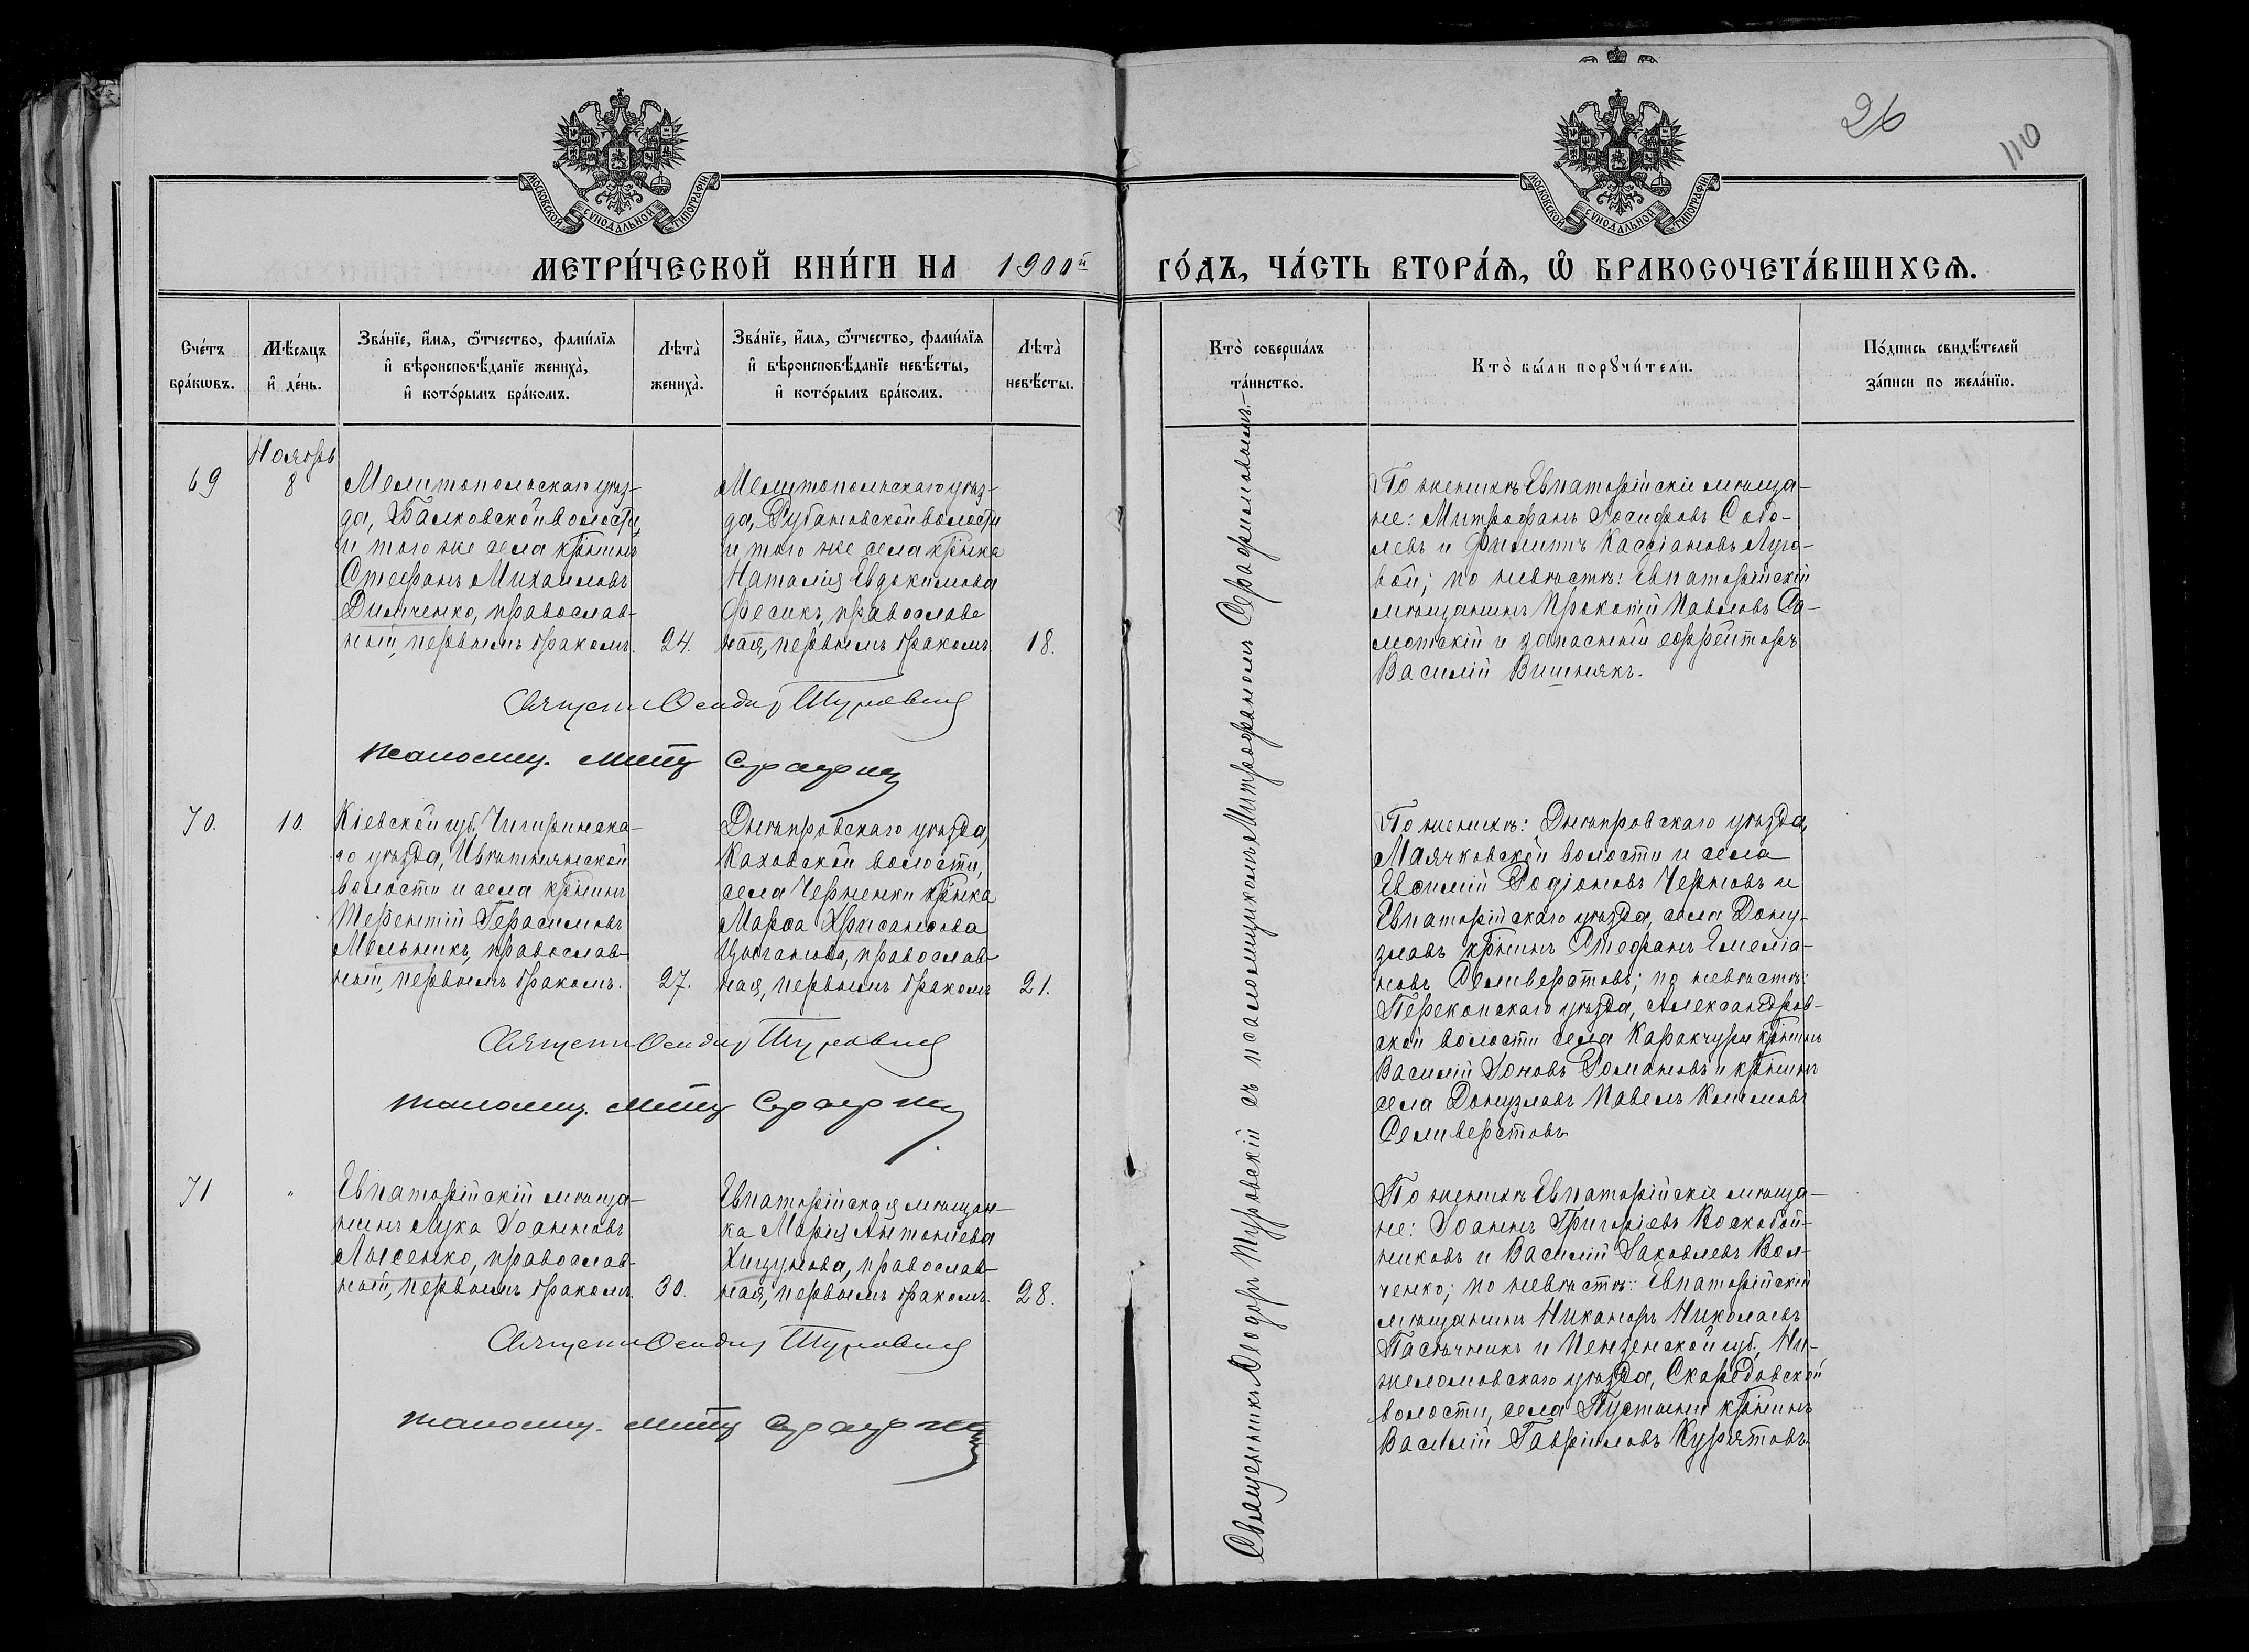 26
110
МОСКОВСКОЙ СѴНОДАЛЬНОЙ ТИПОГРАФІИ
МОСКОВСКОЙ СѴНОДАЛЬНОЙ ТИПОГРАФІИ
МЕТРИ́ЧЕСКОЙ КНИ́ГИ НА 1900й ГО́ДЪ, ЧА́СТЬ ВТОРА́Ѧ, Ѽ БРАКОСОЧЕТА́ВШИХСѦ.
Сче́тъ
бра́кѡвъ.
Мѣ́сяцъ
и҆ де́нь.
Зва́нїе, и҆́мя, ѻ҆́тчество, фами́лїя
и҆ вѣроисповѣ́данїе жениха̀,
и҆ кото́рымъ бра́комъ.
Лѣта̀
жениха̀.
Зва́нїе, и҆́мя, ѻ҆́тчество, фами́лїя
и҆ вѣроисповѣ́данїе невѣ́сты,
и҆ кото́рымъ бра́комъ.
Лѣта̀
невѣ́сты.
Кто̀ соверша́лъ
та́инство.
Кто̀ бы́ли порꙋчи́тели.
По́дпись свидѣ́телей
за́писи по жела́нїю.
69
Ноябрь
8
Мелитопольскаго уѣз-
да, Балковской волости,
и того же села крѣнинъ
Стефанъ Михаиловъ
Димченко, православ-
ный, первымъ бракомъ.
24.
Мелитопольскаго уѣз-
да, Рубановской волости
и того же села крѣнка
Наталія Евдокимова
Фесикъ, православ-
ная, первымъ бракомъ.
18.
По женихѣ Евпаторійскіе мѣща-
не: Митрофанъ Іосифовъ Собо-
левъ и Филиппъ Кассіановъ Луго-
вой; по невѣстѣ: Евпаторійскій
мѣщанинъ Прокопій Павловъ Са-
мотскій и запасный ефрейторъ
Василій Вишнякъ.
Священн Ѳеодор Туровскій
псаломщ. Митр Серафим
70.
10.
Кіевской губ. Чигиринска-
го уѣзда, Ивкатнянской
волости и села крѣнинъ
Терентій Герасимовъ
Мельникъ, православ-
ный, первымъ бракомъ.
27.
Днѣпровскаго уѣзда,
Каховской волости,
села Черненки крѣнка
Марѳа Хрисанѳова
Цыганова, православ-
ная, первымъ бракомъ
21.
По женихѣ: Днѣпровскаго уѣзда,
Маячковской волости и села
Евфимій Родіоновъ Черновъ и
Евпаторійскаго уѣзда, села Дону-
злавъ крѣнинъ Стефанъ Емеліа-
новъ Селиверстовъ; по невѣстѣ:
Перекопскаго уѣзда, Александров-
ской волости села Каракчури крѣнинъ
Василій Іоновъ Романовъ и крѣнинъ
села Донузлавъ Павелъ Климовъ
Селиверстовъ
Священн Ѳеодор Туровскій
псаломщ. Митр Серафим
71
"
Евпаторійскій мѣща-
нинъ Лука Іоанновъ
Лысенко, православ-
ный, первымъ бракомъ.
30.
Евпаторійская мѣщан-
ка Марія Антоніева
Хицунова, православ-
ная, первымъ бракомъ.
28.
По женихѣ Евпаторійскіе мѣща-
не: Іоаннъ Григоріевъ Воскобой-
никовъ и Василій Іаковлевъ Вол-
ченко; по невѣстѣ: Евпаторійскій
мѣщанинъ Никаноръ Николаевъ
Пасѣчникъ и Пензенской губ., Ни-
желомовскаго уѣзда, Скородовской
волости, села Пустыни крѣнинъ
Василій Гавріиловъ Курятовъ.
Священн Ѳеодор Туровскій
псаломщ. Митр Серафим
Священникъ Ѳеодоръ Туровскій съ псаломщикомъ Митрофаномъ Серафимовымъ.